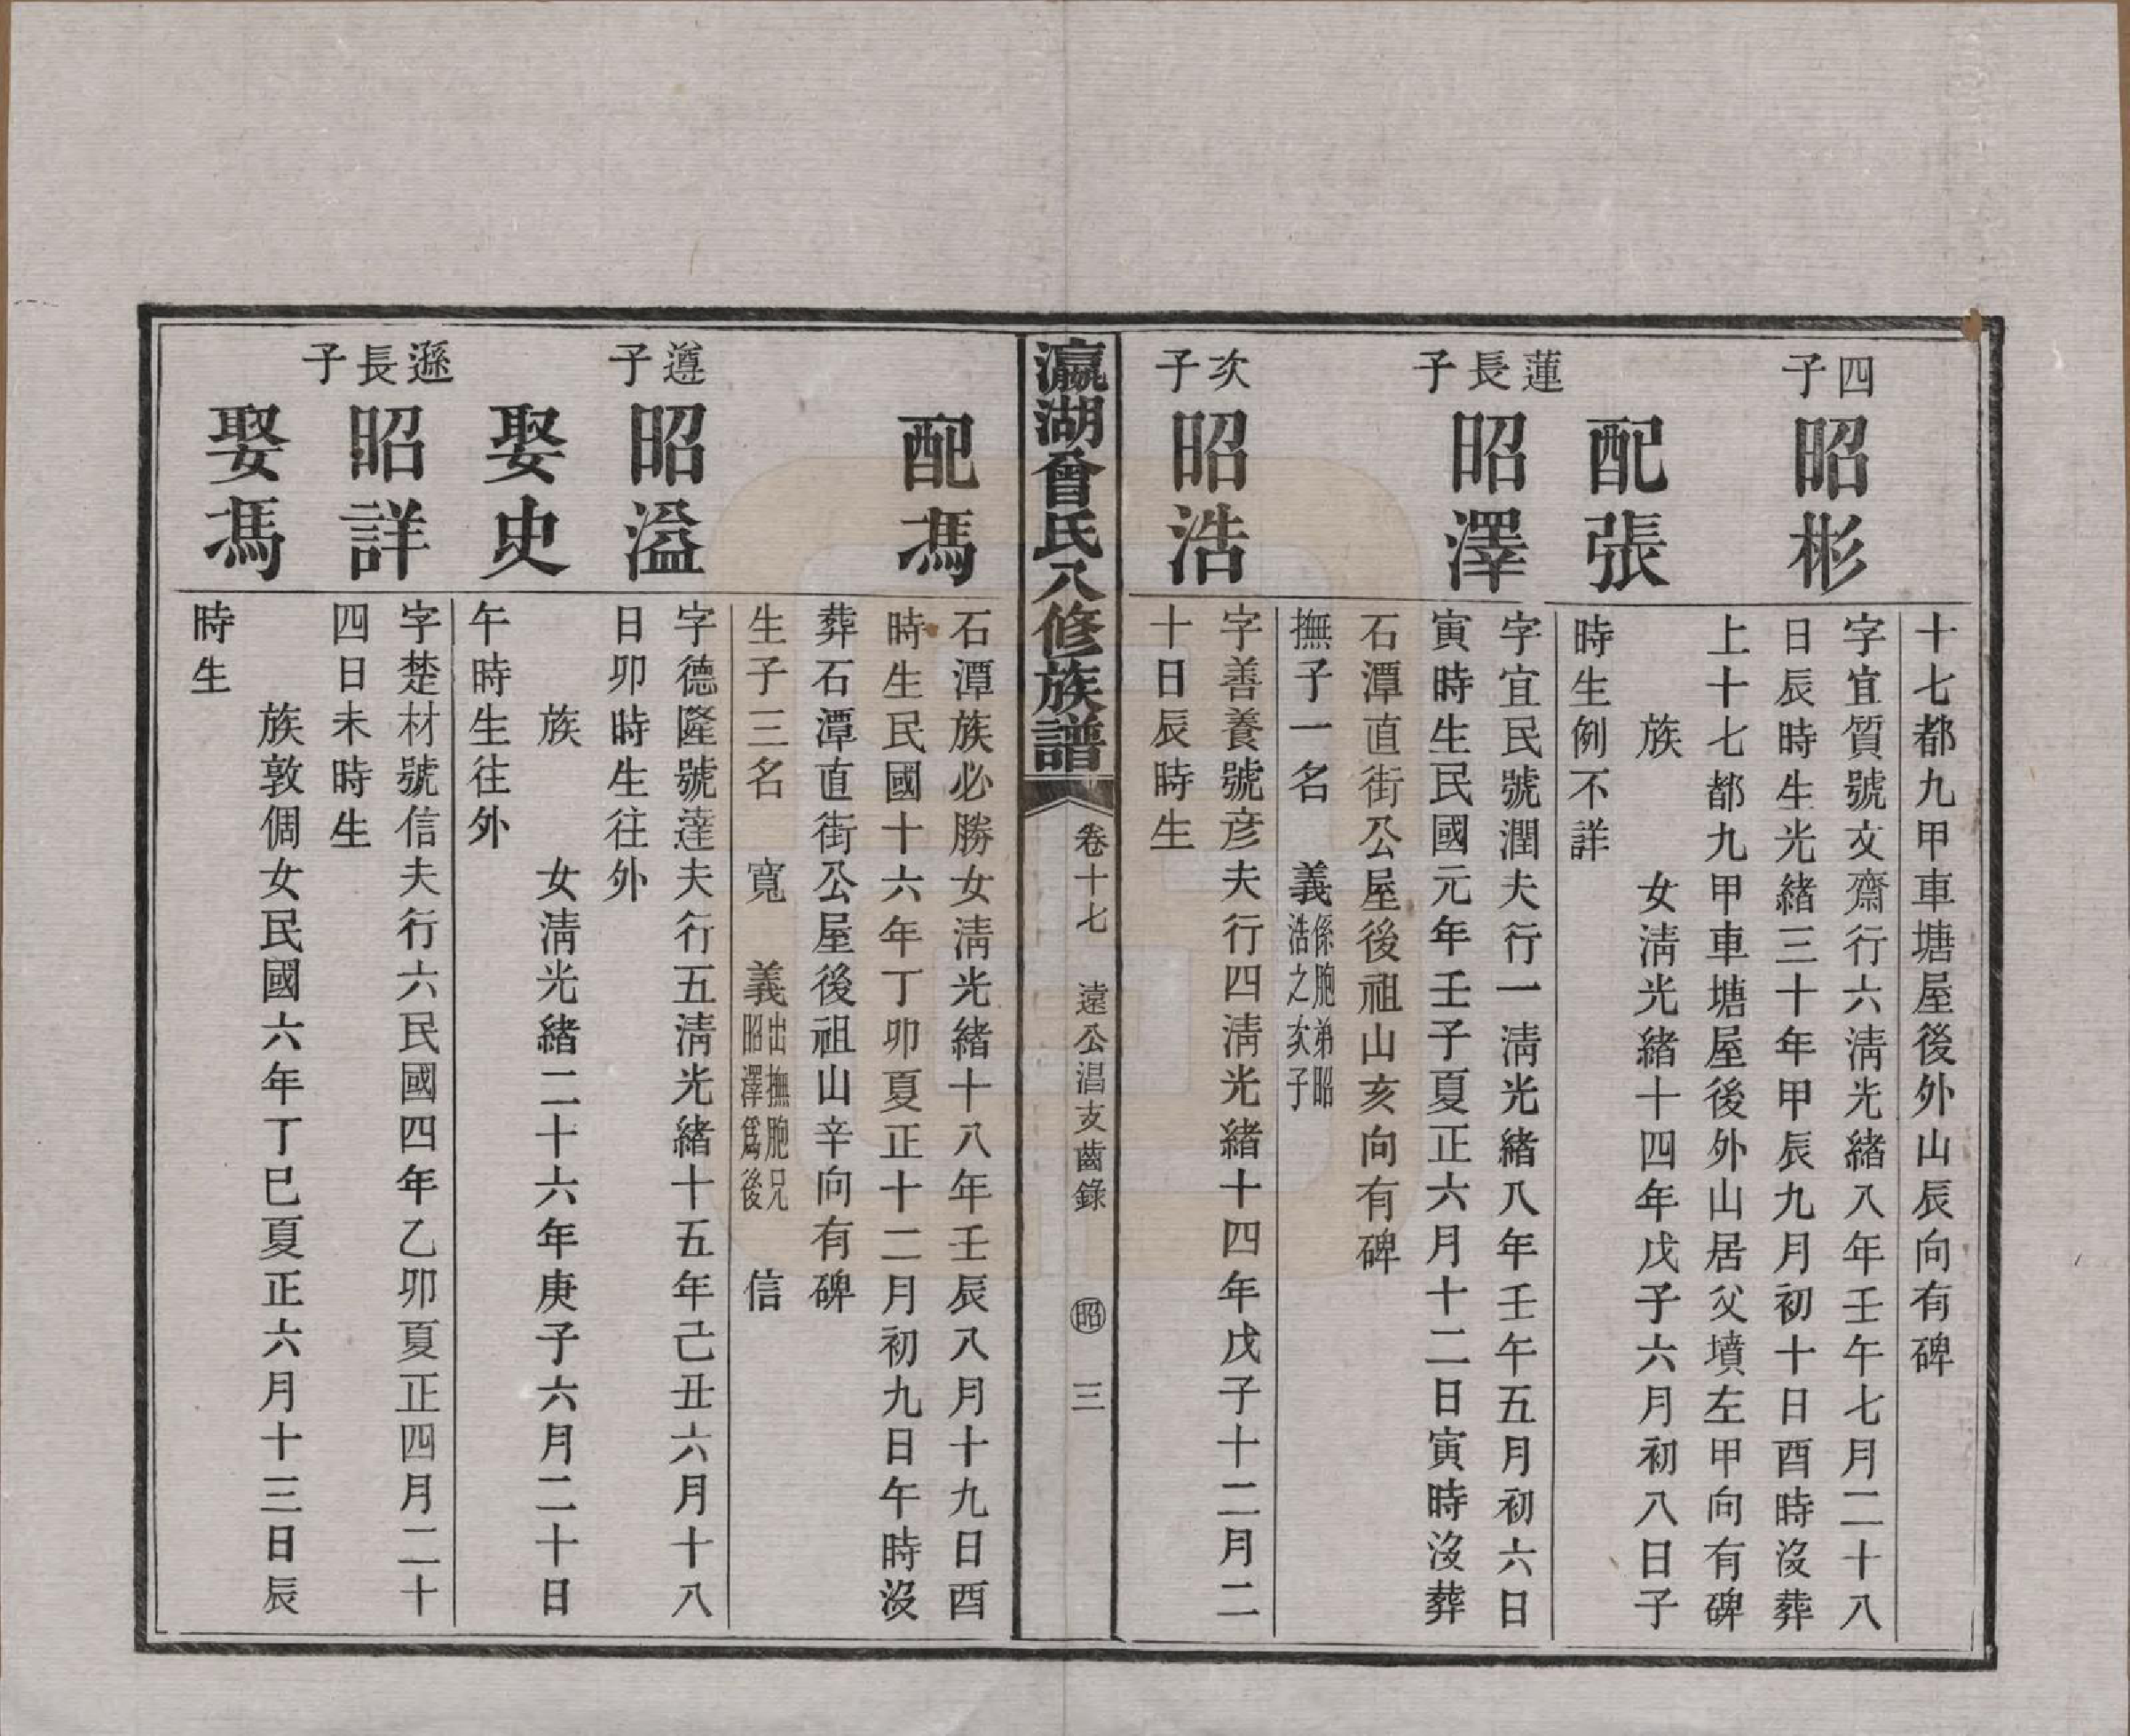 十七都九甲車塘屋後外山辰向有碑
四子
昭彬
字宜質號文齋行六淸光緖八年壬午七月二十八
日辰時生光緖三十年甲辰九月初十日酉時沒葬
上十七都九甲車塘屋後外山居父墳左甲向有碑
配張
族　　女淸光緖十四年戊子六月初八日子
時生例不詳
蓮長子
昭澤
字宜民號潤夫行一淸光緖八年壬午五月初六日
寅時生民國元年壬子夏正六月十二日寅時沒葬
石潭直街公屋後祖山亥向有碑
撫子一名　義係胞弟昭浩之次子
次子
昭浩
字善養號彦夫行四淸光緖十四年戊子十二月二
十日辰時生
瀛湖曾氏八修族譜
卷十七　遠公淐支齒錄　昭　三
配馮
石潭族必勝女淸光緖十八年壬辰八月十九日酉
時生民國十六年丁卯夏正十二月初九日午時沒
葬石潭直街公屋後祖山辛向有碑
生子三名　寬　義出撫胞兄昭澤爲後　信
遵子
昭溢
字德隆號達夫行五淸光緖十五年己丑六月十八
日卯時生往外
娶史
族　　女淸光緖二十六年庚子六月二十日
午時生往外
遜長子
昭詳
字楚材號信夫行六民國四年乙卯夏正四月二十
四日未時生
娶馮
族敦倜女民國六年丁巳夏正六月十三日辰
時生